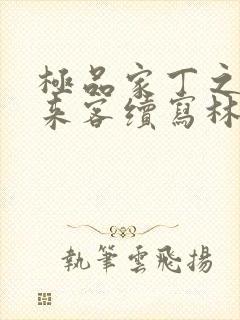 極品家丁之
來客續寫林
執筆雲飛揚